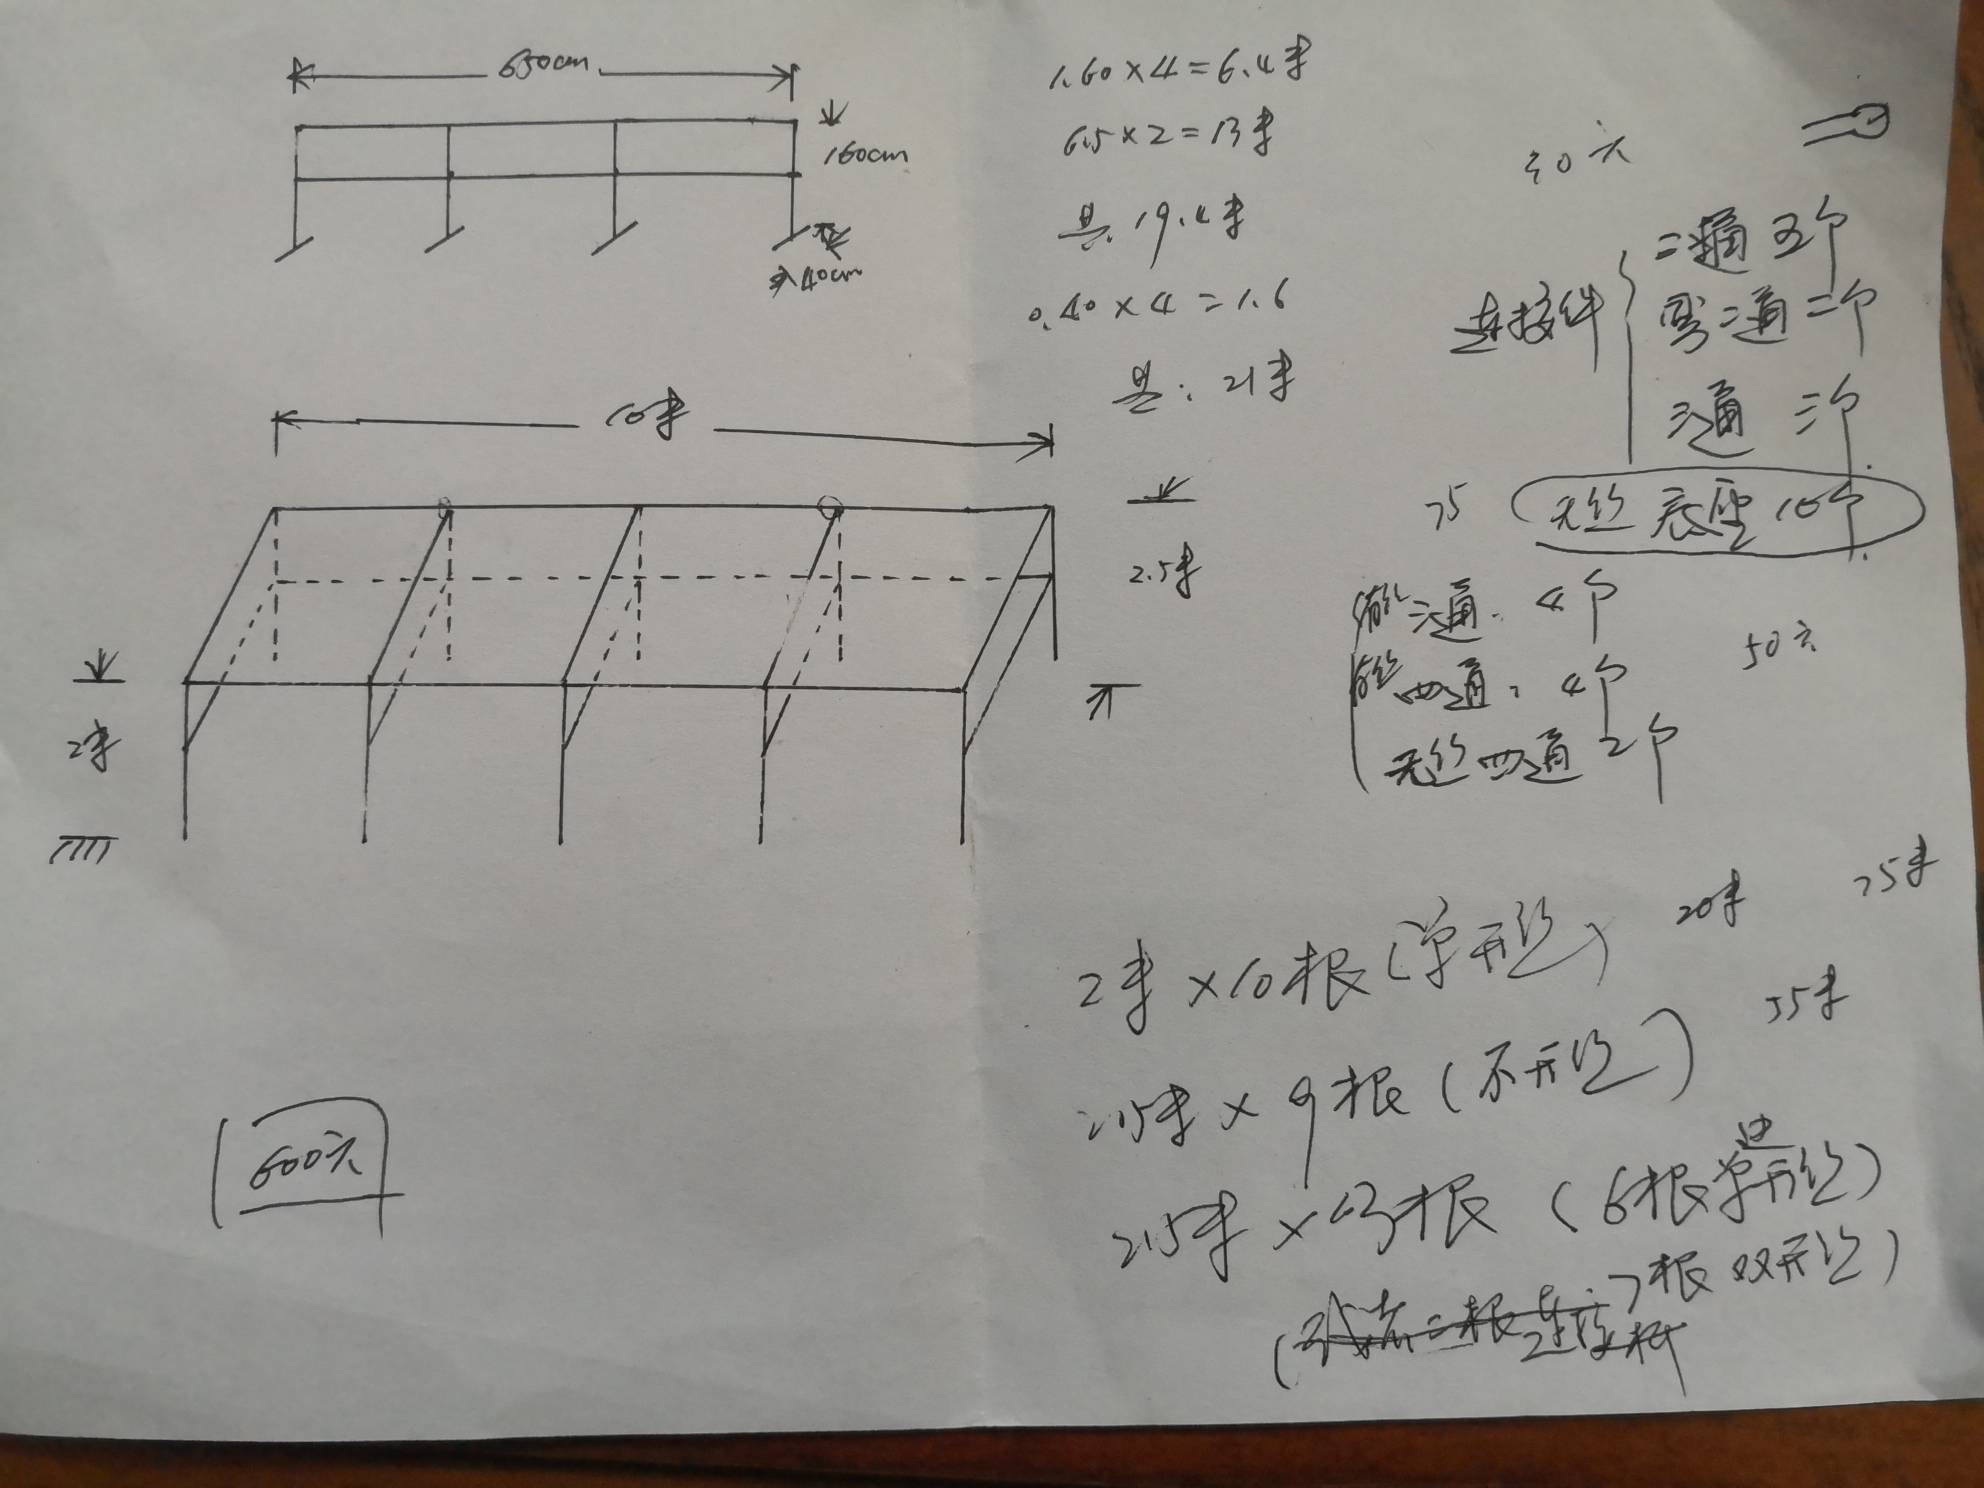 650cm
160cm
40cm
1.60×4=6.4米
6.5×2=13米
共.19.4米
0.40×4=1.6
共:21米
30元
连接件
二通 五个
弯二通 二个
三通 三个
75 无丝底座 10个
有丝三通. 4个
有丝四通. 4个
50元
无丝四通 2个
10米
2.5米
2米
2米×10根(单开丝) 20米
25米
2.5米×9根(不开丝)
55米
2.5米×13根(6根单边开丝)
7根双开丝)
600元